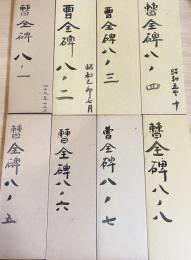 曹全碑
八ノ一
曹全碑
八ノ二
昭和乙卯七月
曹全碑
八ノ三
曹全碑
八ノ四
曹全碑
八ノ五
曹全碑
八ノ六
曹全碑
八ノ七
曹全碑
八ノ八